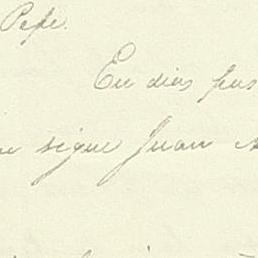 Pepe.
En dias pas
sigue Juan